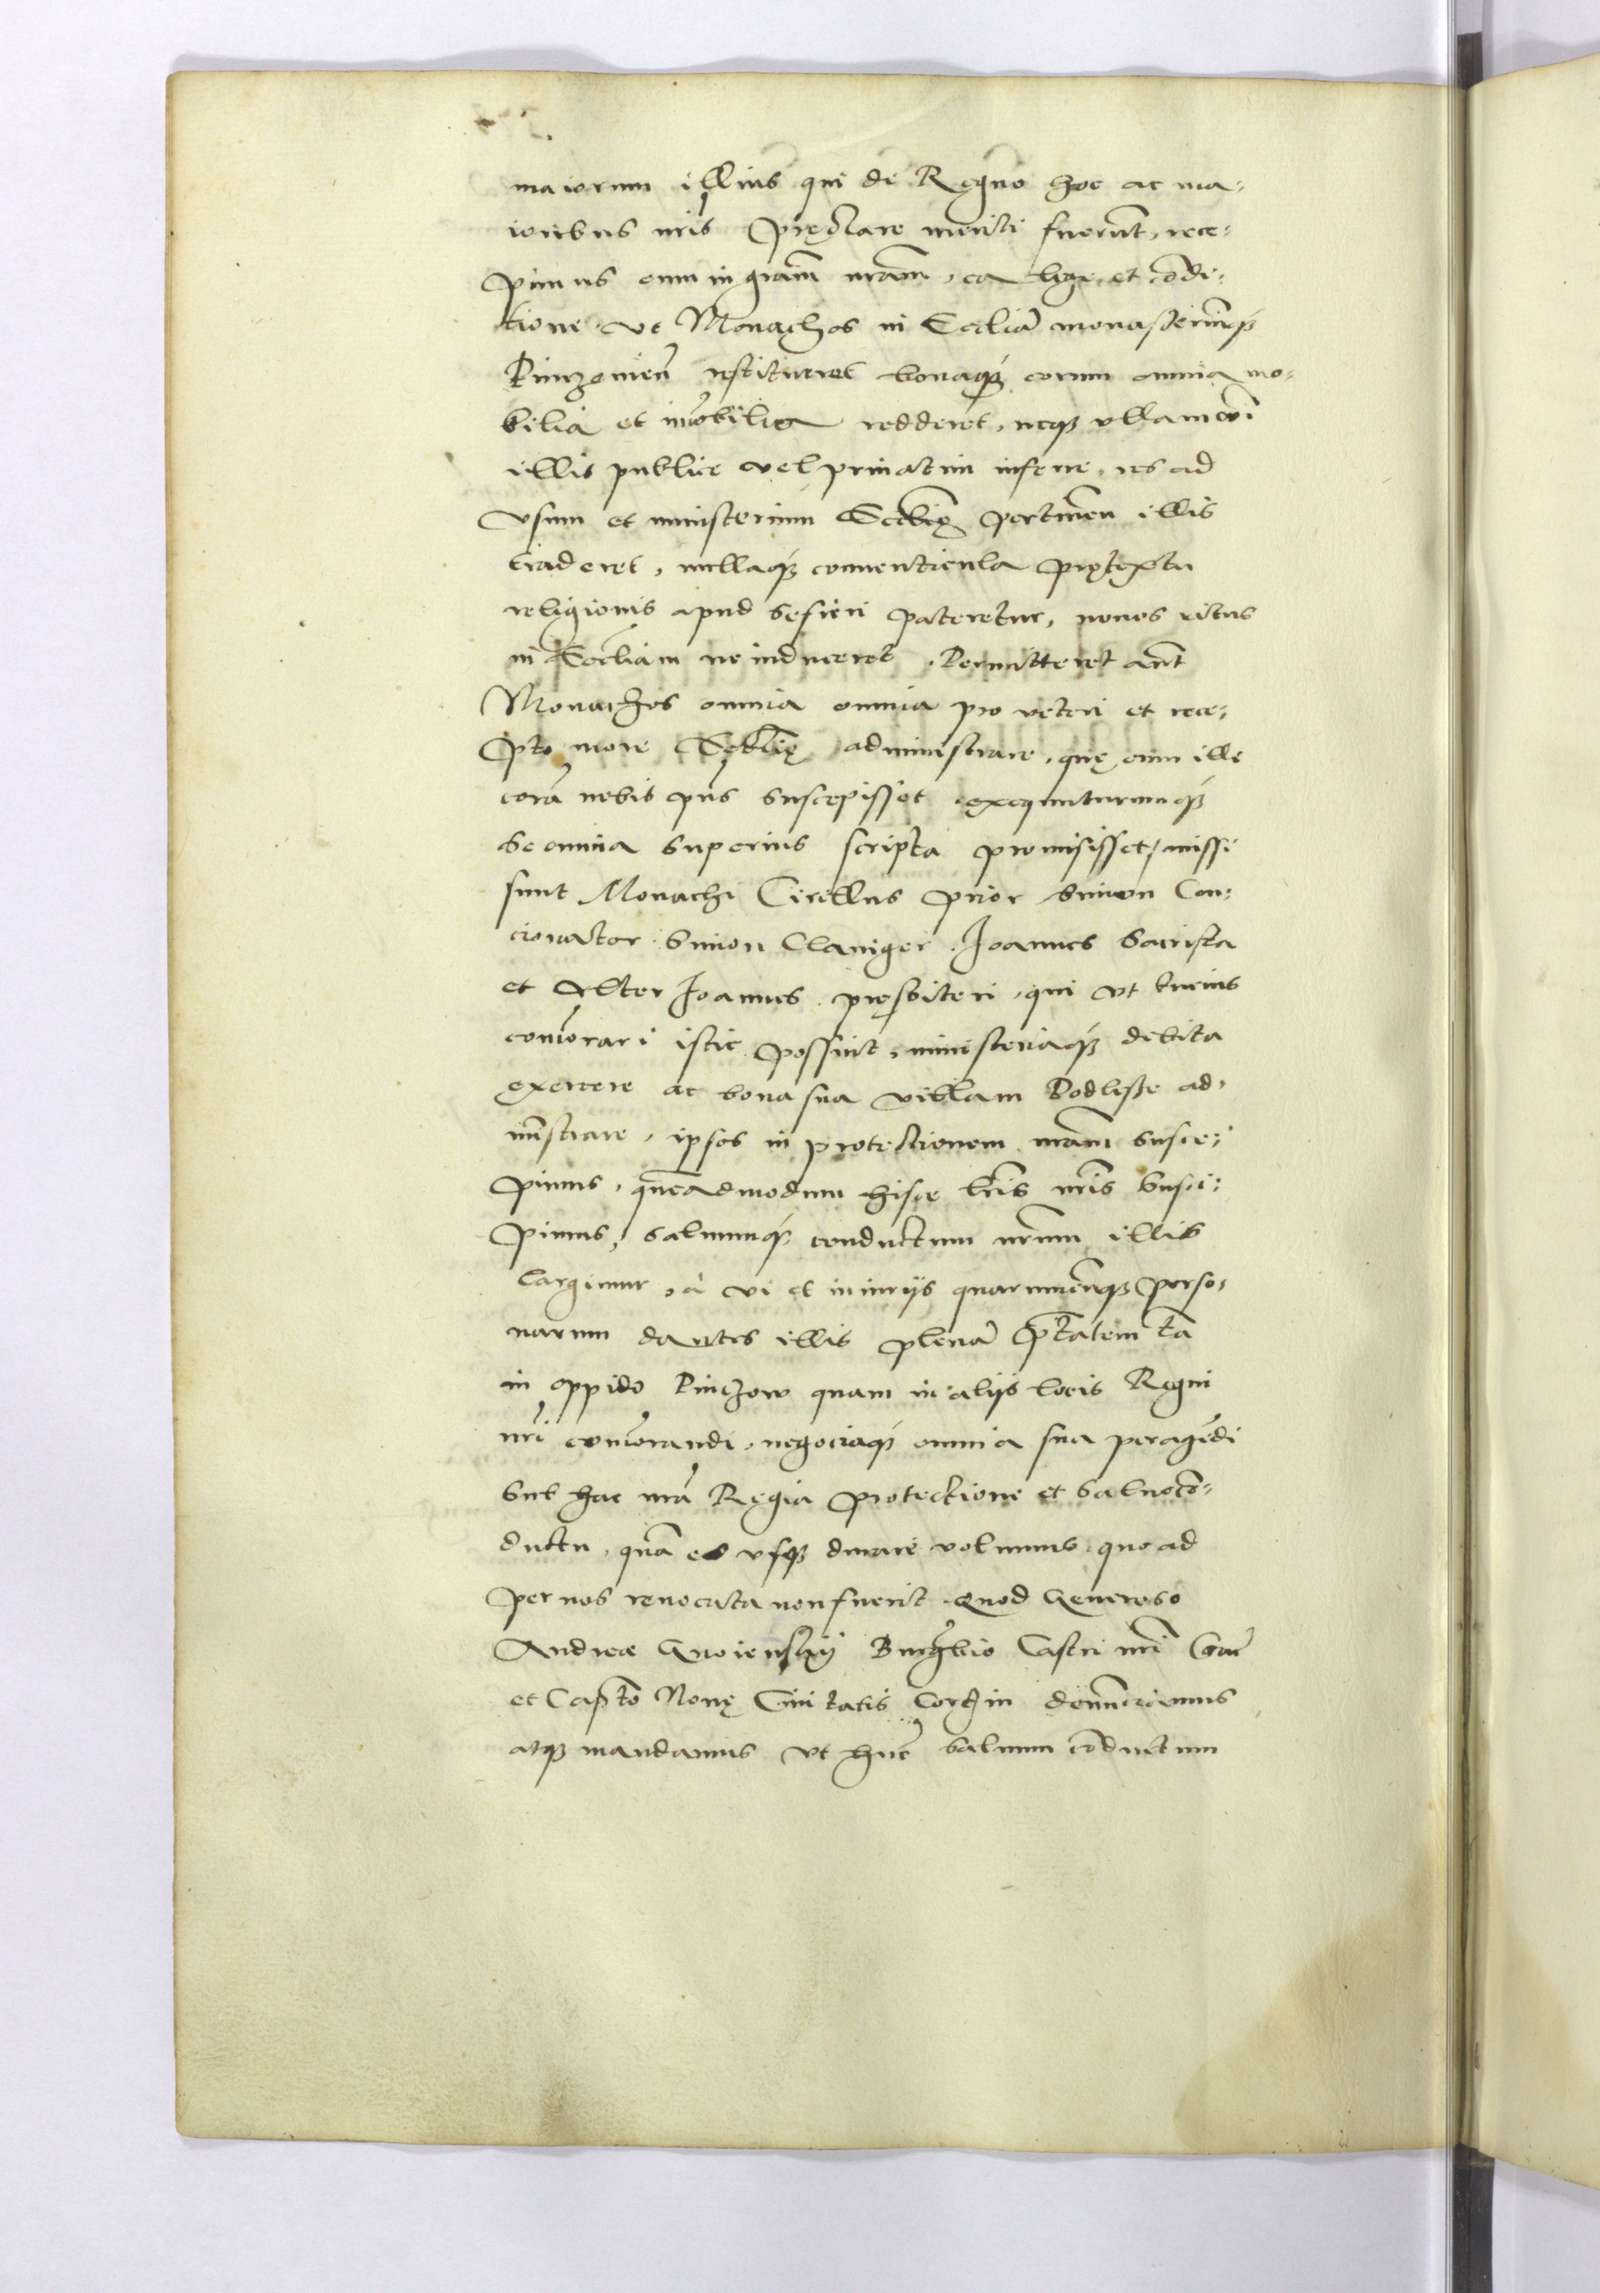 maiorum illius qui de Regno hoc ac ma-
ioribus nr̃is pręclare meriti fuerunt, rece-
pimus eum in gr̃am nr̃am, ea lege et cõdi-
tione ut Monachos in Eccl̃iã monasteriumq̃
Pinczovien̄ restitueret bonaq̃ eorum omnia mo-
bilia et im̃obilia redderet, neq̃ ullam vim
illis publice vel privatim inferre, res ad
usum et ministerium Eccl̃ię pertinen̄ illis
traderet, nullaq̃ conventicula prętextu
religionis apud se fieri pateretur, novos ritus
in Eccl̃iam ne induceret. Permitteret aut̃
Monachos omnia omnia pro veteri et rece-
pto more Eccl̃ię administrare, quę cum ille
corã nobis pñs suscepisset exequuturumq̃
se omnia superius scripta promisisset, missi
sunt Monachi Cirillus Prior Simon Con-
cionator Simon Claviger Joannes Sacrista
et Alter Joannes presbiteri, qui ut tucius
com̃orari istic possint, ministeriaq̃ debita
exercere ac bona sua villam Podlesze ad-
ministrare, ipsos in protectionem nr̃am susce-
pimus, quẽadmodum hisce lr̃is nr̃is susci-
pimus, salvumq̃ conductum nr̃um illis
largimur, à vi et iniuriis quarumcũq̃ perso-
narum dantes illis plenã ptãtem tã
in oppido Pinczow quam in aliis locis Regni
nr̃i com̃orandi, negociaq̃ omnia sua peragẽdi
sub hac nr̃a Regia protectione et salvo cõ-
ductu, quã eo usq̃ durare volumus quoad
per nos revocata non fuerit. Quod Generoso
Andreæ Gnoienskij Burg̃bio Castri nr̃i Crac̃
et Capt̃o Novę Civitatis Corczin denunciamus
atq̃ mandamus ut hunc salvum cõductum